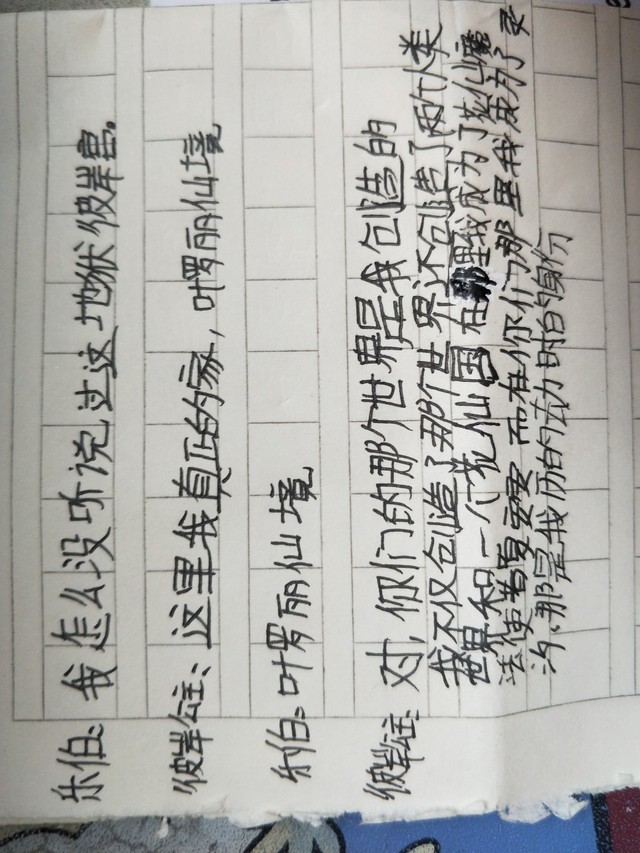 乐伯：我怎么没听说过这地狱彼岸宫。
彼岸公主：这里我真正的家，叶罗丽仙境
乐伯：叶罗丽仙境
彼岸公主：对，你们的那个世界是我创造的
我不仅创造了那个世界还创造了两个人类
世界和一个花仙国在那里我成为了花仙魔
法使者夏安安 而在你们那里我成为了灵
沟、那是我历的劫时台的身份